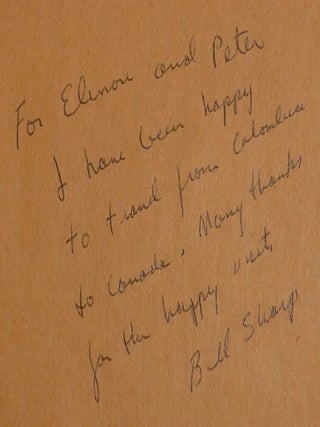 For Elinor and Peter
I have been happy
to travel from Columbia
to Canada. Many thanks
for the happy visit,
Bill Sharp